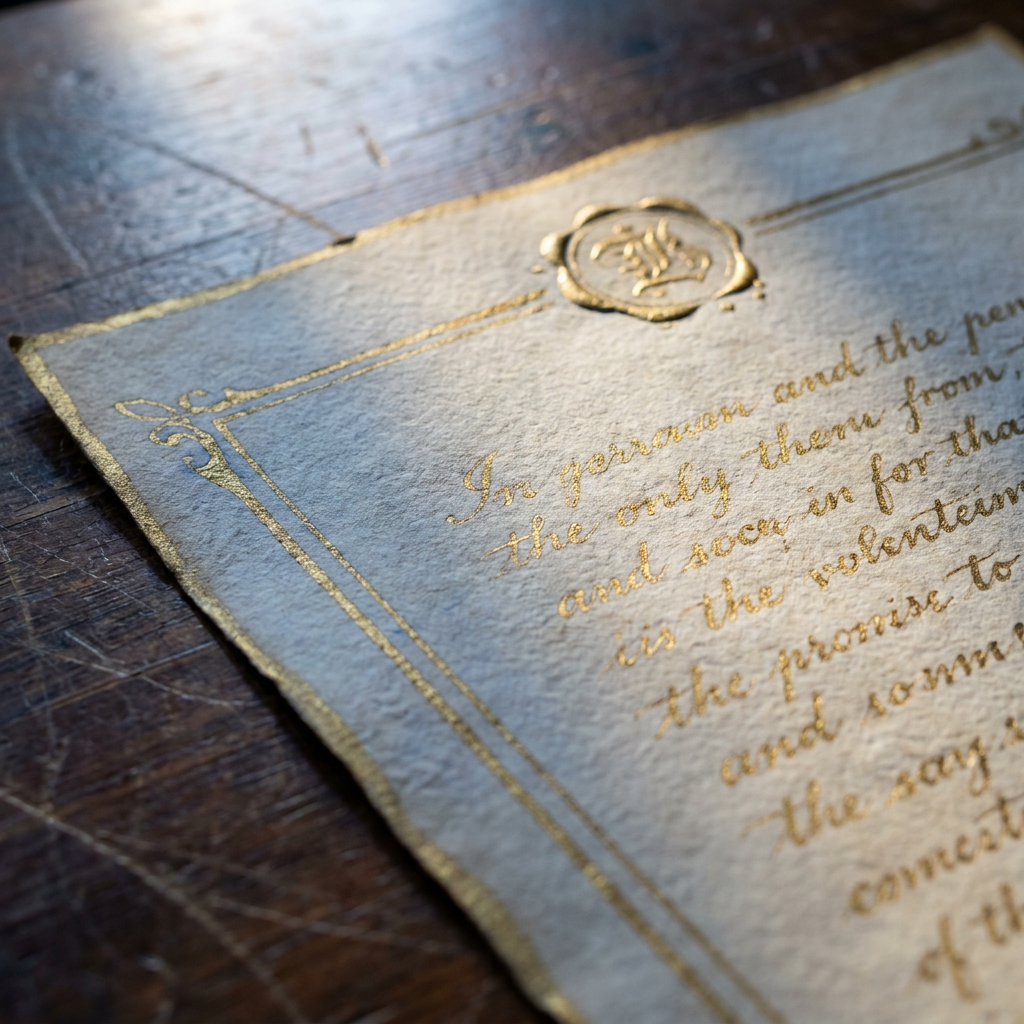 In gerraɩon and the pen
the only them from,
and socy in for tha
iis the volenteim
the promise to
and somm
the say s
comest
of th